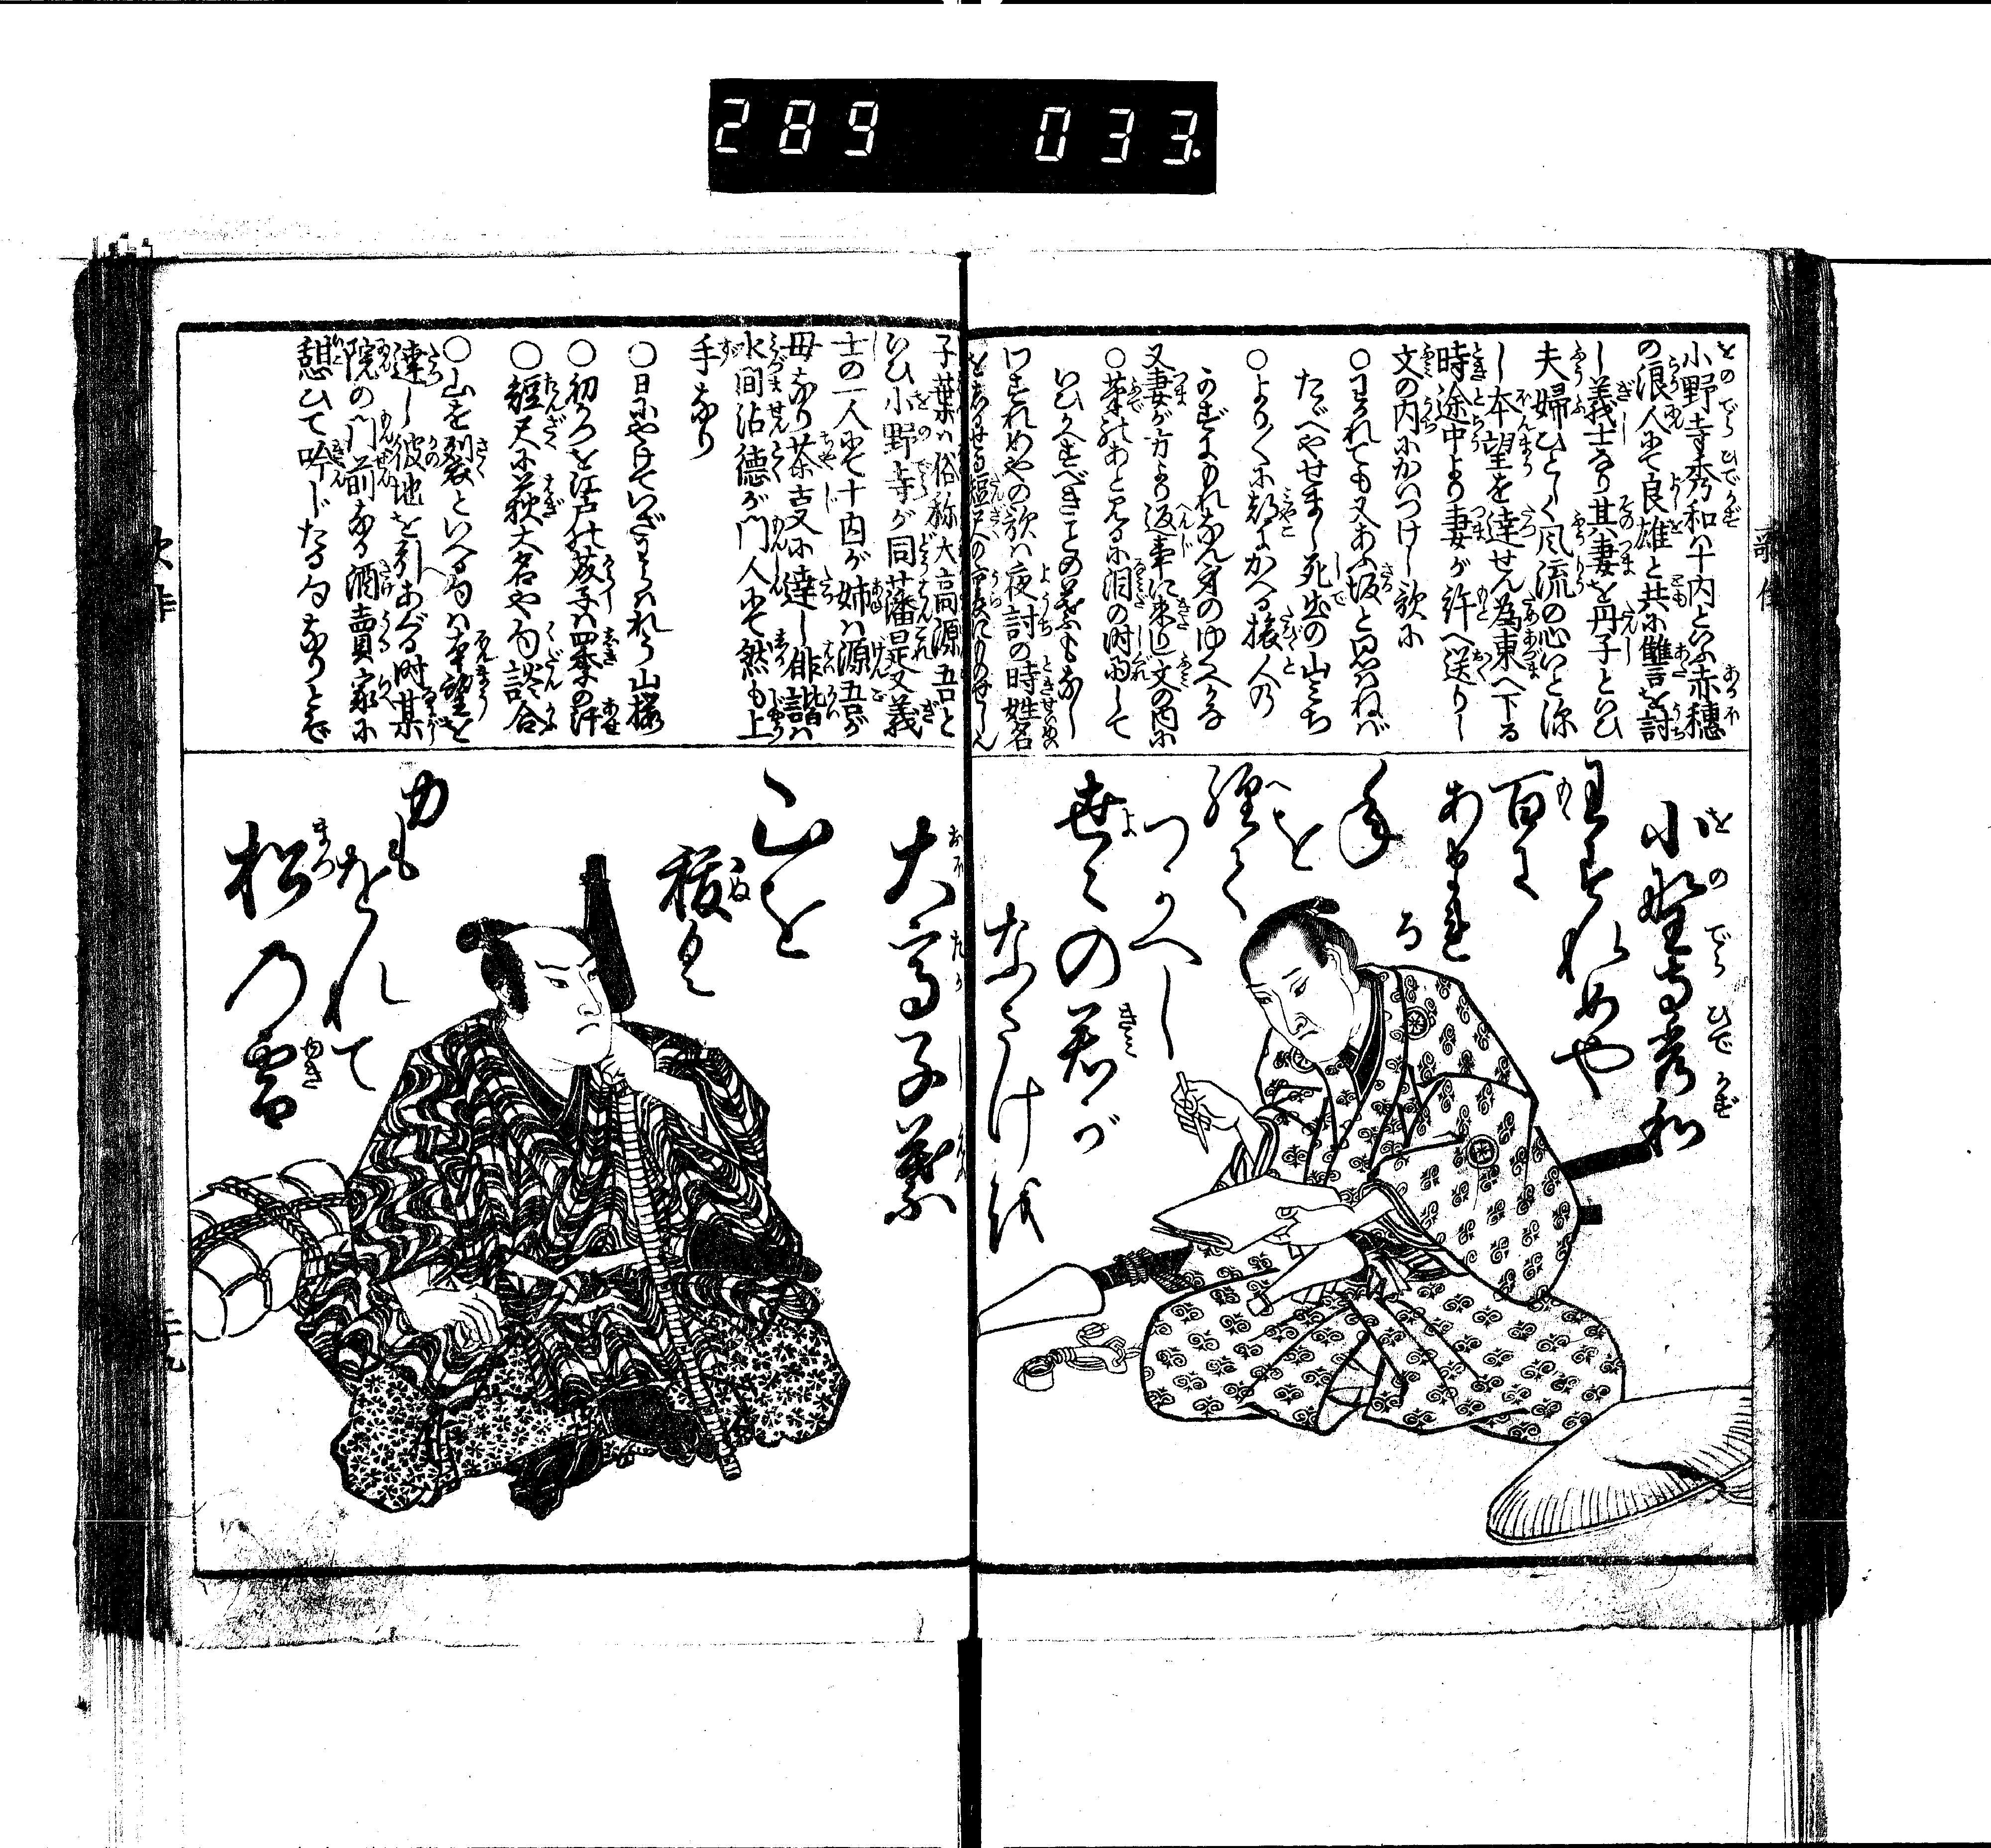 289 033.
小野寺秀和ハ十内といふ赤穂
の浪人にて良雄と共に讐を討
し義士なり其妻を丹子といひ
夫婦ひとしく風流の心いと深
し本望を達せん為東へ下る
時途中より妻が許へ送りし
文の内にかいつけし歌に
○わかれても又あふ坂と思はねば
たぐへやせまし死出の山みち
○よりくに都にかへる旅人の
又妻が方より返事に来りし文の内に
○筆のあと見るに泪の時雨して
いひかへすべきことの葉もなし
わすれめやの歌ハ夜討の時姓名
小野寺秀和
をの でら ひで かず
わすれめや
百に
あまれ
る
年
を
経て
つかへし
世々の君が
なさけ越
子葉ハ俗称大高源吾と
いひ小野寺が同藩是又義
士の一人にて十内が姉ハ源吾が
母なり茶事に達し俳諧ハ
水間沾徳が門人にて然も上
手なり
○日にやけていざまゐれう山桜
○短尺に萩大名や句談合
○山を裂といへる句ハ本望を
達し彼地を引あぐる時某
院の門前なる酒賣家に
憩ひて吟じたる句なりとぞ
大高子葉
山を
抜
力も
をれて
松乃雪